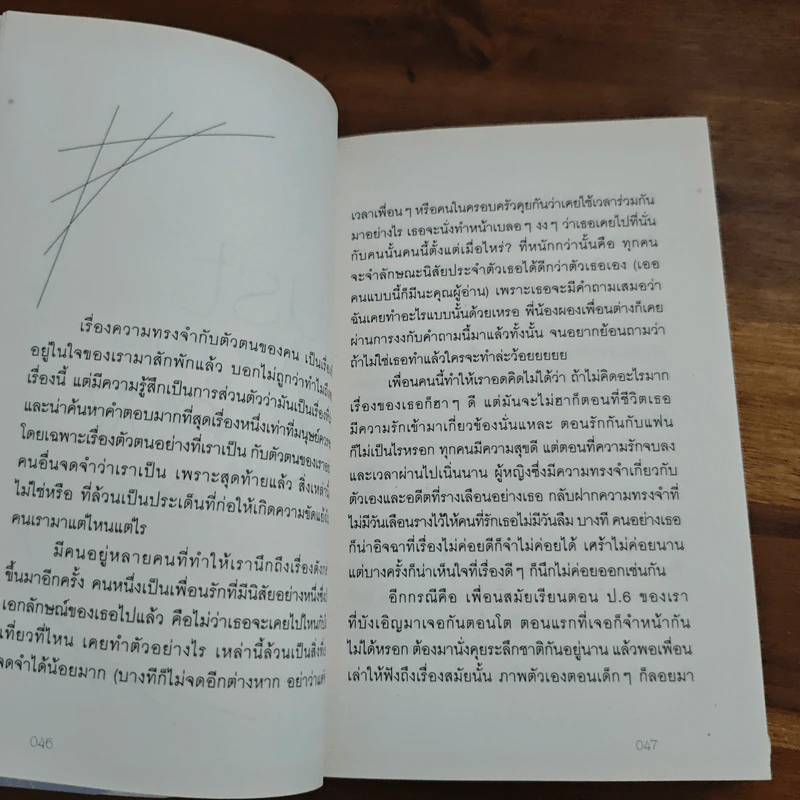 เรื่องความทรงจำกับตัวตนของคน เป็นเรื่อง
อยู่ในใจของเรามาสักพักแล้ว บอกไม่ถูกว่าทำไมถึง
เรื่องนี้ แต่มีความรู้สึกเป็นการส่วนตัวว่ามันเป็นเรื่องที่
และน่าค้นหาคำตอบมากที่สุดเรื่องหนึ่งเท่าที่มนุษย์
โดยเฉพาะเรื่องตัวตนอย่างที่เราเป็น กับตัวตนของเรา
คนอื่นจดจำว่าเราเป็น เพราะสุดท้ายแล้ว สิ่งเหล่านี้
ไม่ใช่หรือ ที่ล้วนเป็นประเด็นที่ก่อให้เกิดความขัดแย้ง
คนเรามาแต่ไหนแต่ไร
มีคนอยู่หลายคนที่ทำให้เรานึกถึงเรื่อง
ขึ้นมาอีกครั้ง คนหนึ่งเป็นเพื่อนรักที่มีนิสัยอย่างหนึ่ง
เอกลักษณ์ของเธอไปแล้ว คือไม่ว่าเธอจะเคยไปไหน
เที่ยวที่ไหน เคยทำตัวอย่างไร เหล่านี้ล้วนเป็นสิ่งที่
จดจำได้น้อยมาก (บางทีก็ไม่จดอีกต่างหาก อย่าว่าแต่
046
เวลาเพื่อนๆ หรือคนในครอบครัวคุยกันว่าเคยใช้เวลาร่วมกัน
มาอย่างไร เธอจะนั่งทำหน้าเบลอๆ งงๆ ว่าเธอเคยไปที่นั่น
กับคนนั้นคนนี้ตั้งแต่เมื่อไหร่? ที่หนักกว่านั้นคือ ทุกคน
จะจำลักษณะนิสัยประจำตัวเธอได้ดีกว่าตัวเธอเอง (เออ
คนแบบนี้ก็มีนะคุณผู้อ่าน) เพราะเธอจะมีคำถามเสมอว่า
ฉันเคยทำอะไรแบบนั้นด้วยเหรอ พี่น้องผองเพื่อนต่างก็เคย
ผ่านการงงกับคำถามนี้มาแล้วทั้งนั้น จนอยากย้อนถามว่า
ถ้าไม่ใช่เธอทำแล้วใครจะทำล่ะว้อยยยยย
เพื่อนคนนี้ทำให้เราอดคิดไม่ได้ว่า ถ้าไม่คิดอะไรมาก
เรื่องของเธอก็ฮาๆ ดี แต่มันจะไม่ฮาก็ตอนที่ชีวิตเธอ
มีความรักเข้ามาเกี่ยวข้องนั่นแหละ ตอนรักกันกับแฟน
ก็ไม่เป็นไรหรอก ทุกคนมีความสุขดี แต่ตอนที่ความรักจบลง
และเวลาผ่านไปเนิ่นนาน ผู้หญิงซึ่งมีความทรงจำเกี่ยวกับ
ตัวเองและอดีตที่รางเลือนอย่างเธอ กลับฝากความทรงจำที่
ไม่มีวันเลือนรางไว้ให้คนที่รักเธอไม่มีวันลืม บางที คนอย่างเธอ
ก็น่าอิจฉาที่เรื่องไม่ค่อยดีก็จำไม่ค่อยได้ เศร้าไม่ค่อยนาน
แต่บางครั้งก็น่าเห็นใจที่เรื่องดีๆ ก็นึกไม่ค่อยออกเช่นกัน
อีกกรณีคือ เพื่อนสมัยเรียนตอน ป.6 ของเรา
ที่บังเอิญมาเจอกันตอนโต ตอนแรกที่เจอก็จำหน้ากัน
ไม่ได้หรอก ต้องมานั่งคุยระลึกชาติกันอยู่นาน แล้วพอเพื่อน
เล่าให้ฟังถึงเรื่องสมัยนั้น ภาพตัวเองตอนเด็กๆ ก็ลอยมา
047